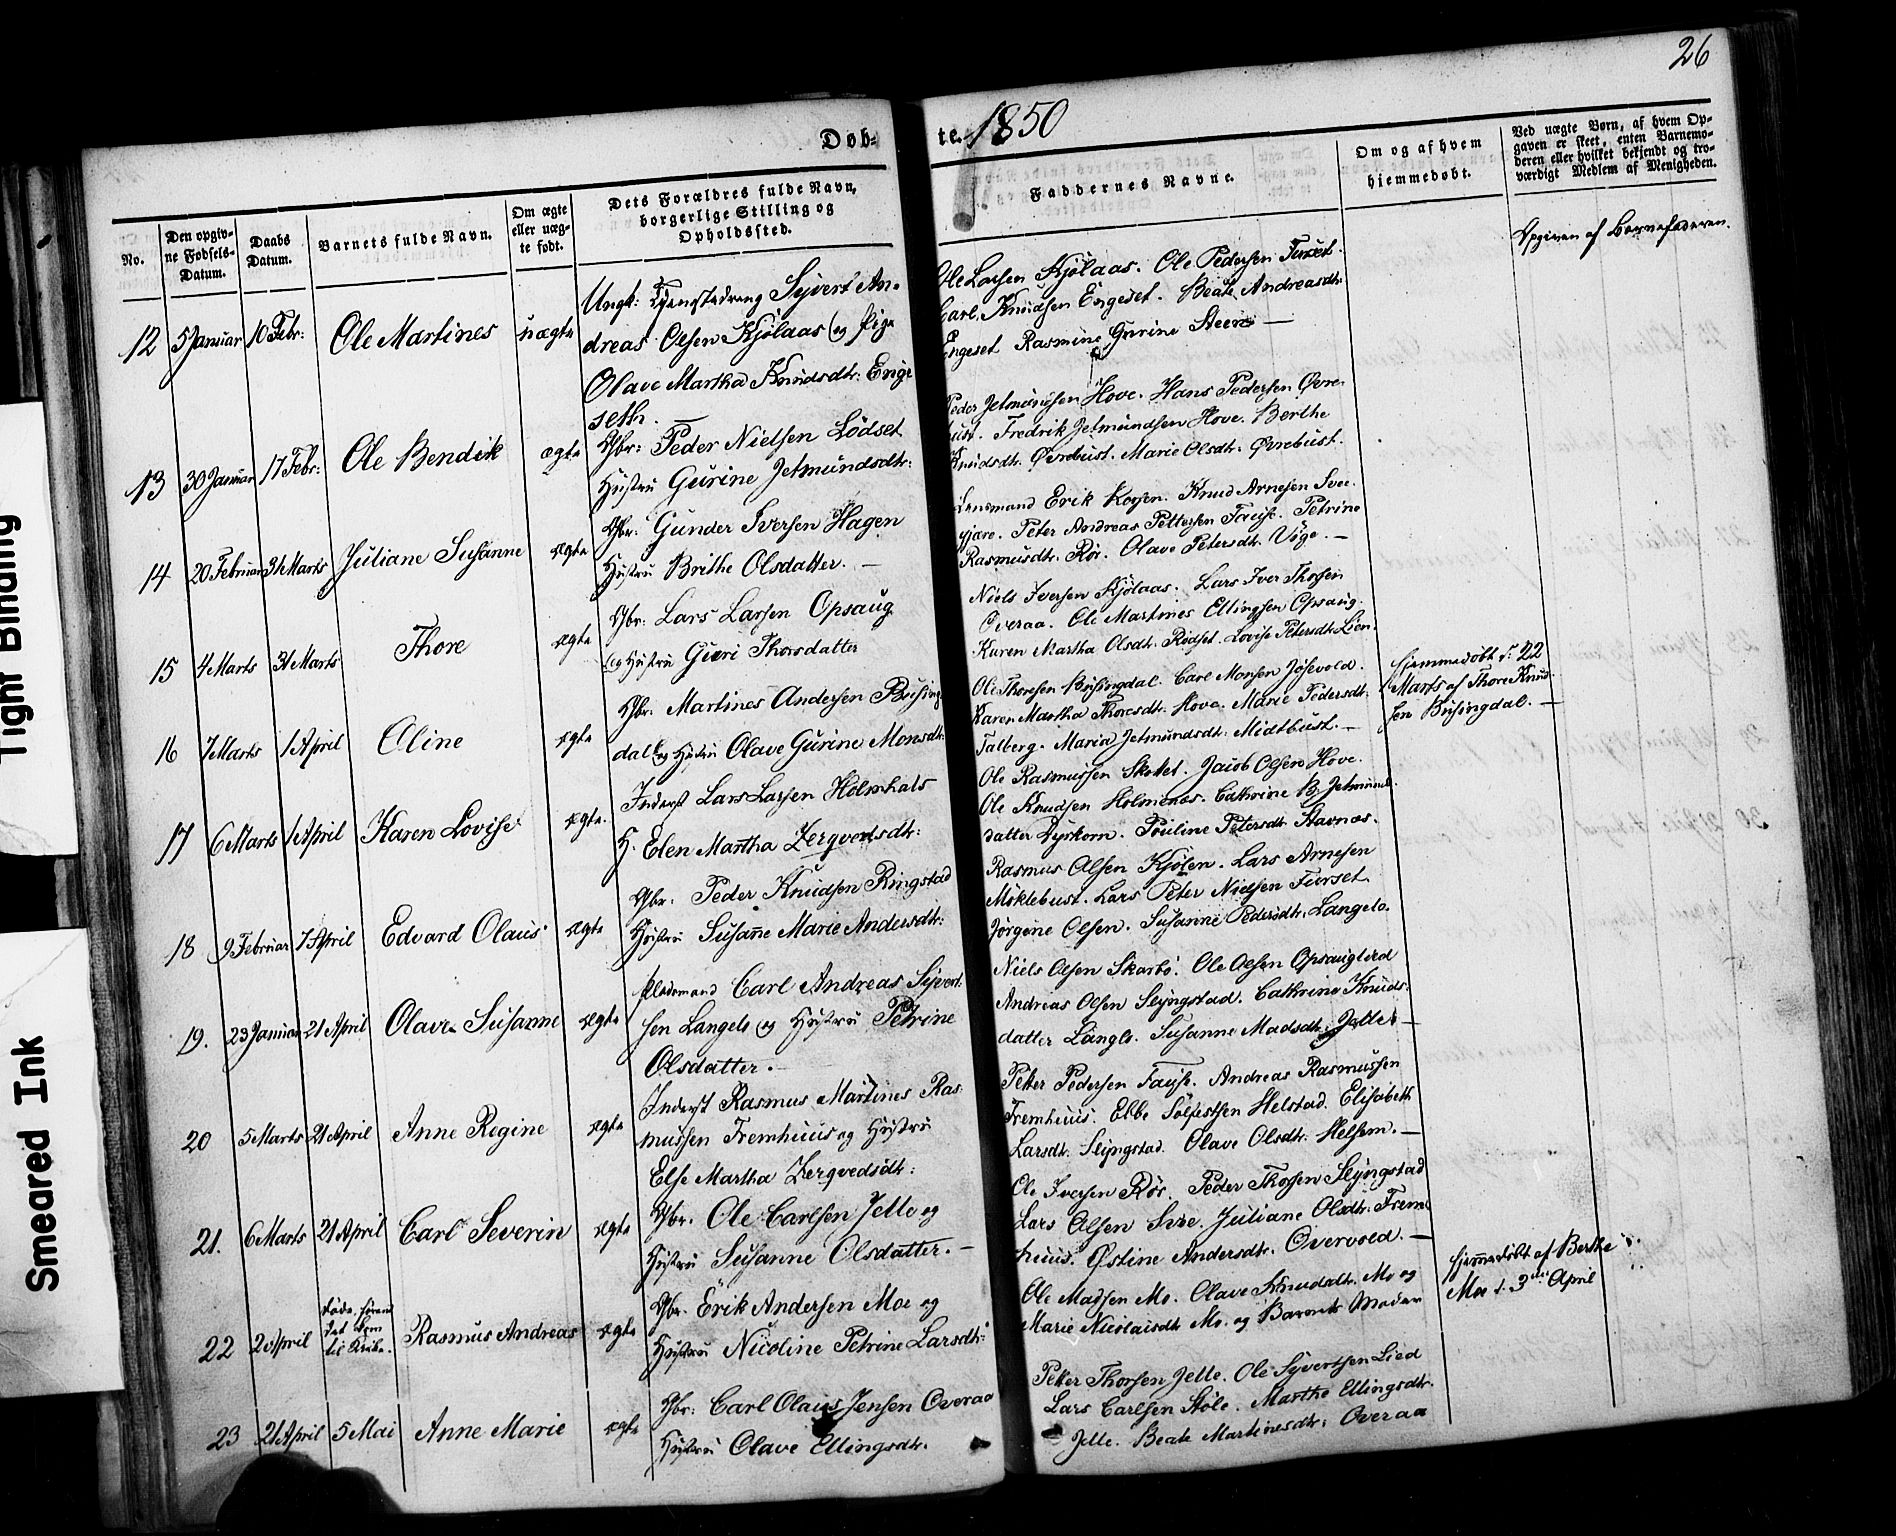 26
Døb-
te. 1850
No.
Den opgiv-
ne Fødsels-
Datum.
Daabs
Datum.
Barnets fulde Navn.
Om ægte
eller uæg-
te født.
Dets Forældres fulde Navn,
borgerlige Stilling og
Opholdssted.
Faddernes Navne.
Om og af hvem
hiemmedøbt.
Ved uægte Børn, af hvem Op-
gaven er skeet, enten Barnemo-
deren eller hvilket bekjendt og tro-
værdigt Medlem af Menigheden.
12 5 Januar 10 Febr: Ole Martines uægte
Ungk: Tjenestedreng Syvert An-
dreas Olsen Kjølaas og Pige
Olave Martha Knudsdtr: Enge
seth.
Ole Larsen Kjølaas. Ole Pedersen Furset.
Carl Knudsen Engeset. Beate Andreasdtr.
Engeset Rasmine Gurine Steen —
Opgiven af Barnefaderen.
13 30 Januar 17 Febr: Ole Bendik ægte
Gbr: Peder Nielsen Lødset
Hustru Gurine Jetmundsdtr:
Peder Jetmundsen Hove. Hans Pedersen Øvre-
bust. Fredrik Jetmundsen Hove. Berthe
Knudsdtr. Øvrebust. Marie Olsdtr. Øvrebust.
14 20 Februar 31 Marts Juliane Susanne ægte
Gbr: Gunder Iversen Hagen
Hustru Brithe Olsdatter. —
Lensmand Erik Korsen. Knud Arnesen Svee
Peter Andreas Pettersen Fause. Petrine
Rasmusdtr. Rør. Olave Petersdtr. Vöge. —
15 4 Marts 31 Marts Thore ægte
Gbr. Lars Larsen Opsaug
og Hustru Guri Thorsdatter
Niels Iversen Kjølaas. Lars Iver Thorsen
Overaa. Ole Martines Ellingsen Opsaug.
Karen Martha Olsdtr. Rødset. Lovise Petersdtr. Lien.
16 7 Marts 1 April Oline ægte
Gbr. Martines Andersen Brusing-
dal og Hustru Olave Gurine Monsdtr:
Ole Thoresen Brusingdal. Carl Monsen Jösevold.
Karen Martha Thoresdtr. Hove. Marie Pedersdtr.
Talberg. Maria Jetmundsdtr. Midtbust. —
Hjemmedøbt d: 22
Marts af Thore Knud-
sen Brusingdal. —
17 6 Marts 1 April Karen Lovise ægte.
Inderst Lars Larsen Holmhals
H. Elen Martha Zergvedsdtr:
Ole Rasmussen Skottet. Jacob Olsen Hove.
Ole Knudsen Holmenæs. Cathrine B. Jetmunds-
datter Dyrkorn. Pouline Petersdtr Stavnæs.
18 9 Februar 7 April Edvard Olaus ægte
Gbr. Peder Knudsen Ringstad
Hustru Susanne Marie Andersdtr:
Rasmus Olsen Kjølen. Lars Arnesen
Möklebust. Lars Peter Nielsen Furset
Jørgine Olsen. Susanne Pedersdtr. Langelo.
19. 23 Januar 21 April Olave Susanne ægte
Pladsmand Carl Andreas Syvert-
sen Langelo og Hustru Petrine
Olsdatter. —
Niels Olsen Skarbö. Ole Olsen Opsauglied
Andreas Olsen Slyngstad. Cathrine Knuds-
datter Langlo. Susanne Madsdtr. Jelle —
20 5 Marts 21 April Anne Regine ægte
Inderst Rasmus Martines Ras-
mussen Fremhuus og Hustru
Else Martha Zergvedsdtr:
Petter Pedersen Fause. Andreas Rasmussen
Fremhuus. Ebbe Solfestsen Helstad. Elisabeth
Larsdtr. Slyngstad. Olave Olsdtr. Helsem. —
21. 6 Marts 21 April Carl Severin ægte
Gbr. Ole Carlsen Jelle og
Hustru Susanne Olsdatter. —
Ole Iversen Rör. Peder Thorsen Slyngstad
Lars Olsen Svee. Juliane Olsdtr. Frem-
huus. Østine Andersdtr. Overvold. —
22 2 April Døde førend
det kom
til Kirke.
Rasmus Andreas ægte
Gbr. Erik Andersen Moe og
Hustru Nicoline Petrine Larsdtr:
Ole Madsen Mo. Olave Knudsdtr. Mo og
Marie Nicolaisdtr Mo. og Barnets Moder
Hjemmedøbt af Berthe
Moe d. 3die April
23 21 April 5 Mai Anne Marie ægte
Gbr: Carl Olaus Jensen Overaa
Hustru Olave Ellingsdtr.
Petter Thorsen Jelle. Ole Syvertsen Lied
Lars Carlsen Støle. Marthe Ellingsdtr.
Jelle. Beate Martinesdtr: Overaa
Tight Binding
Smeared Ink